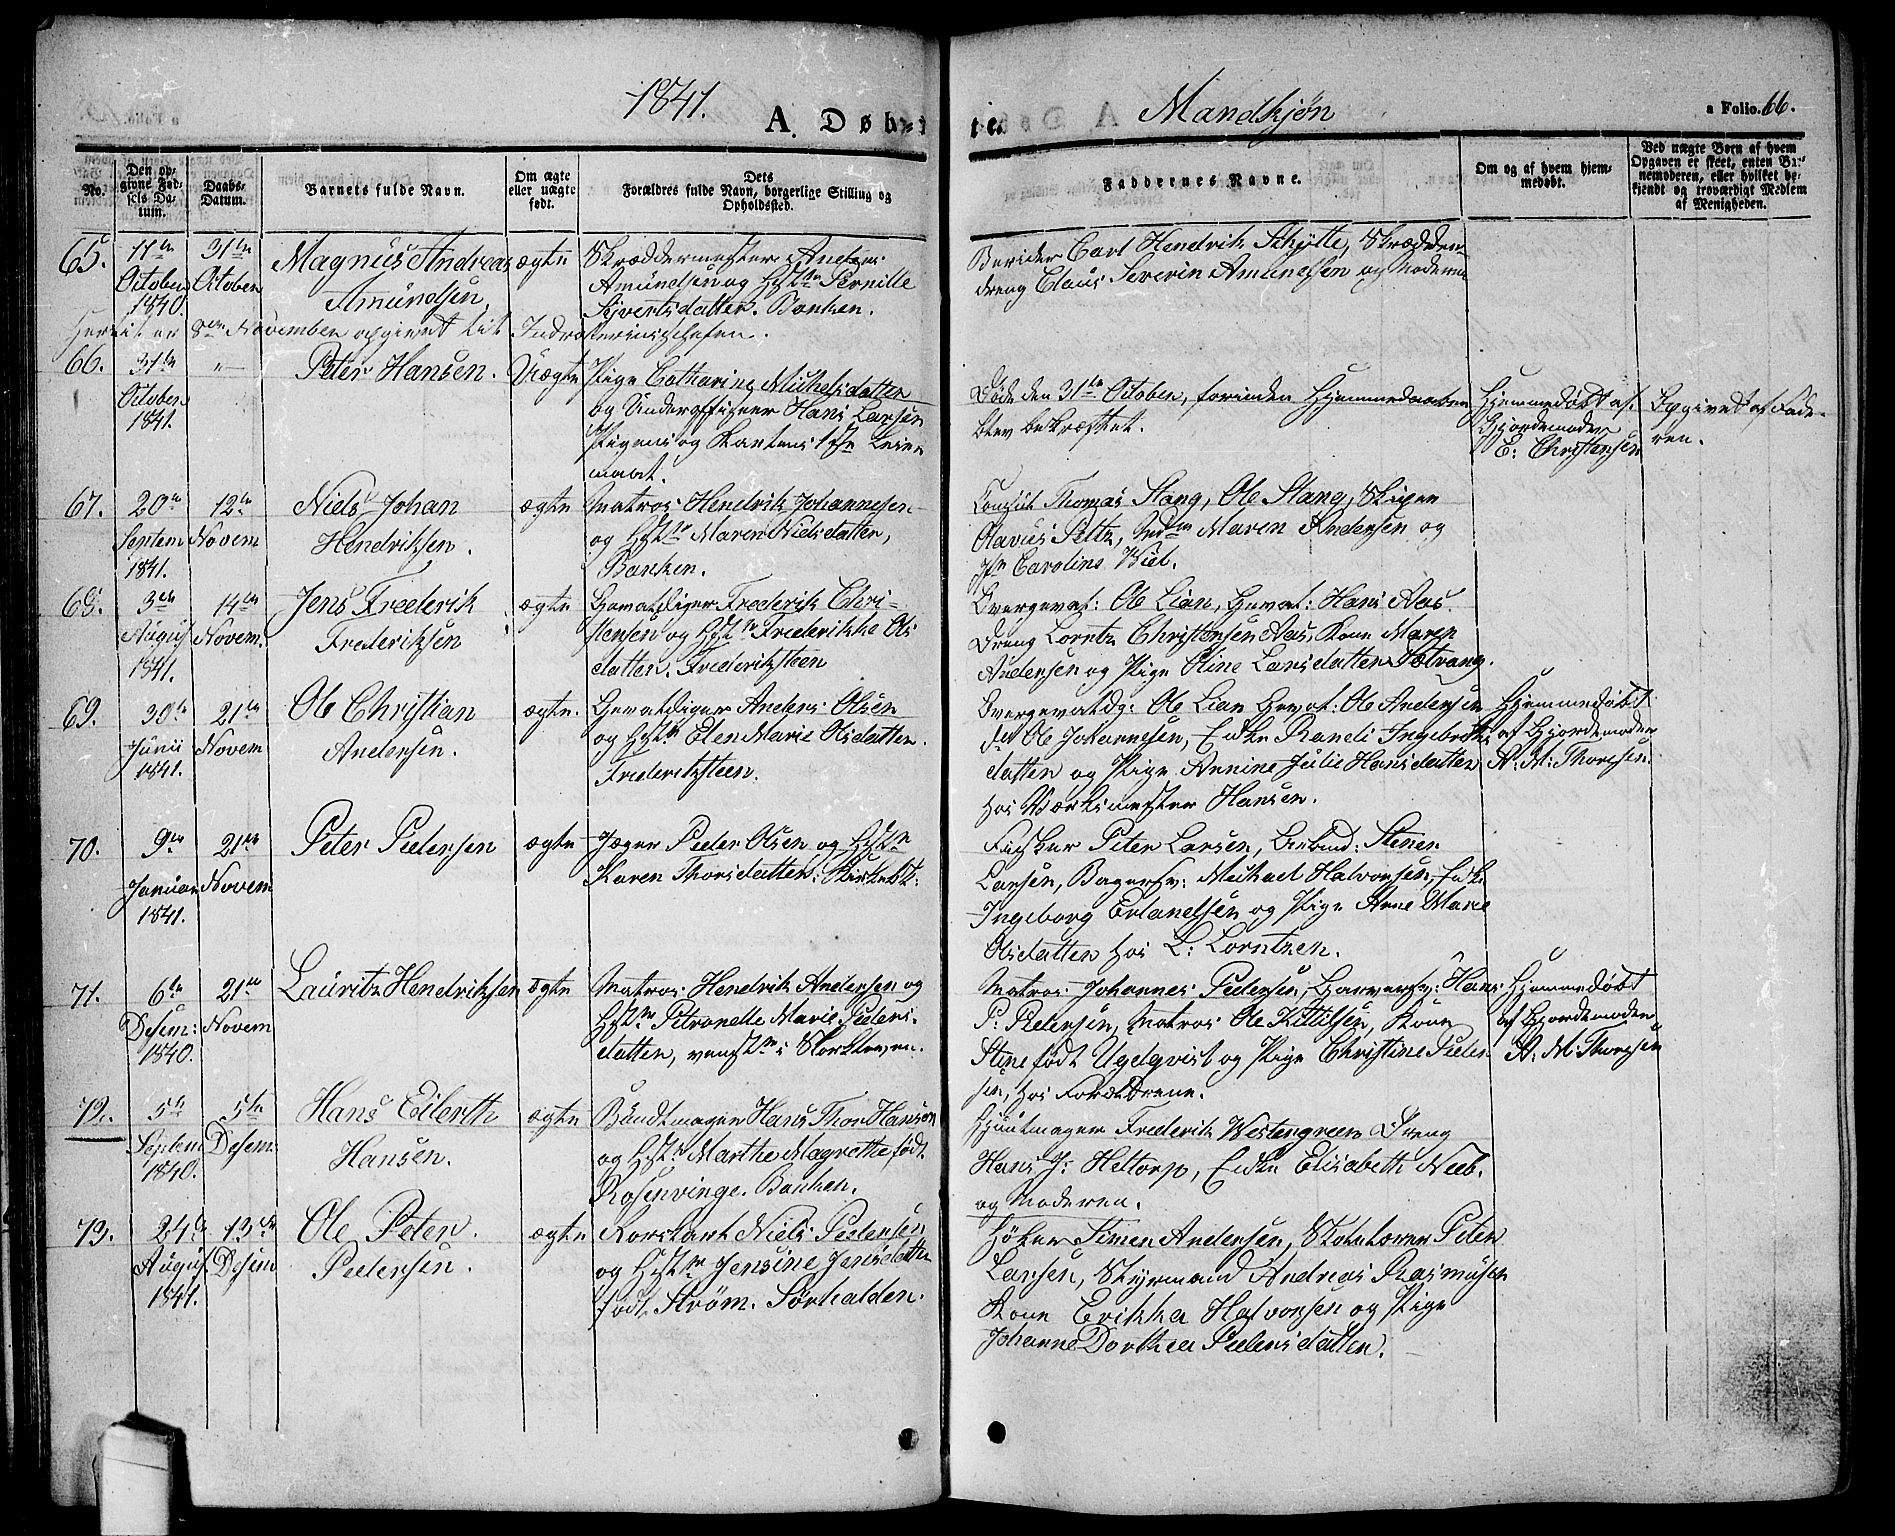 1841.
A. Døbte.
Mandkjøn
a Folio. 66.
No.
Den opgivne Fødsels Datum.
Daabs-Datum.
Barnets fulde Navn.
Om ægte eller uægte født.
Dets Forældres fulde Navn, borgerlige Stilling og Opholdsted.
Faddernes Navne.
Om og af hvem hjemmedøbt.
Ved uægte Børn af hvem Opgaven er skeet, enten Barnemoderen, eller hvilket bekjendt og troværdigt Medlem af Menigheden.
65. 11te October 1840. 31te October
Magnus Andreas
Amundsen.
ægte
Skræddermester Anders
Amundsen og Hst. Pernille
Syvertsdatter. Banken.
Berider Carl Hendrik Schytte, Skrædder
dreng Claus Severin Amundsen og Moderen
Hertil er 8de November opgivet til Indrulleringschefen.
66. 31te October 1841. "
Peter Hansen.
Uægte
Pige Catharine Mikkelsdatter
og Underofficer Hans Larsen
Pigens og Karlens 1ste Leier
maal.
Døde den 31te October, forinden Hjemmedaaben
blev bekræftet.
Hjemmedøbt af
Gjordemoder
E: Christensen
Opgivet af Fade-
ren.
67. 20de Septem 1841. 12te Novem
Niels Johan
Hendriksen.
ægte
Matros Hendrik Johannesen
og Hst. Maren Nielsdatter,
Banken.
Consul Thomas Stang, Ole Stang, Skipper
Olavus Peltz, Md. Maren Andersen og
Jfr Caroline Wiel.
68. 3de August 1841. 14de Novem.
Jens Frederik
Frederiksen
ægte
Gevaldiger Frederik Chri-
stensen og Hst. Frederikke Ols
datter. Frederiksteen
Overgeval: Ole Lian, Geval: Hans Aas.
Dreng Lorntz Christensen Aas, Kone Maren
Andersen og Pige Oline Larsdatter Sætrang.
69. 30te Junii 1841. 21de Novem
Ole Christian
Andersen.
ægte.
Gevaldiger Anders Olsen
og Hst. Elen Marie Olsdatter.
Frederiksteen.
Overgevaldg: Ole Lian Geval: Ole Andersen
do Ole Johannesen, Enke Randi Ingebrets
datter og Pige Annine Julie Hansdatter
hos Værksmester Hansen.
Hjemmedøbt
af Gjordemoder
A: M: Thoresen.
70. 9de Januar 1841. 21de Novem
Peter Pedersen
ægte
Jæger Peder Olsen og Hst.
Karen Thorsdatter:
Fisker Peter Larsen, Stener
Larsen, Bagersv: Michael Halvorsen, Enke
Ingeborg Erlandsen og Pige Anne Marie
Olsdatter hos L: Lorntzen.
71. 6te Desem: 1840. 21de Novem
Lauritz Hendriksen
ægte
Matros Hendrik Andersen og
Hst. Petronelle Marie Peders-
datter,
Matros Johannes Pedersen, Garversv: Hans
P: Pedersen, Matros Ole Kittilsen, Kone
Stine født Ugelqvist og Pige Christine Peder
sen, hos Forældrene.
Hjemmedøbt
af Gjordemoder
A: M: Thoresen
72. 5te Septem 1840. 5te Desem.
Hans Eilerth
Hansen.
ægte
Bundtmager Hans Thor Hansen
og Hst. Marthe Magrethe født
Rosenvinge. Banken.
Frederik Westengreen Dreng
Hans J: Heltorp, Enke Elisabeth Neeb.
og Moderen.
73. 24de August 1841. 13de Desem
Ole Peter
Pedersen.
ægte
Niels Pedersen
og Hst. Jensine Jensdatter
født Strøm. Sørhalden.
Høker Simen Andersen, Peter
Larsen, Styrmand Andreas Rasmusen
Kone Erikka Halvorsen og Pige
Johanne Dorthea Pedersdatter.